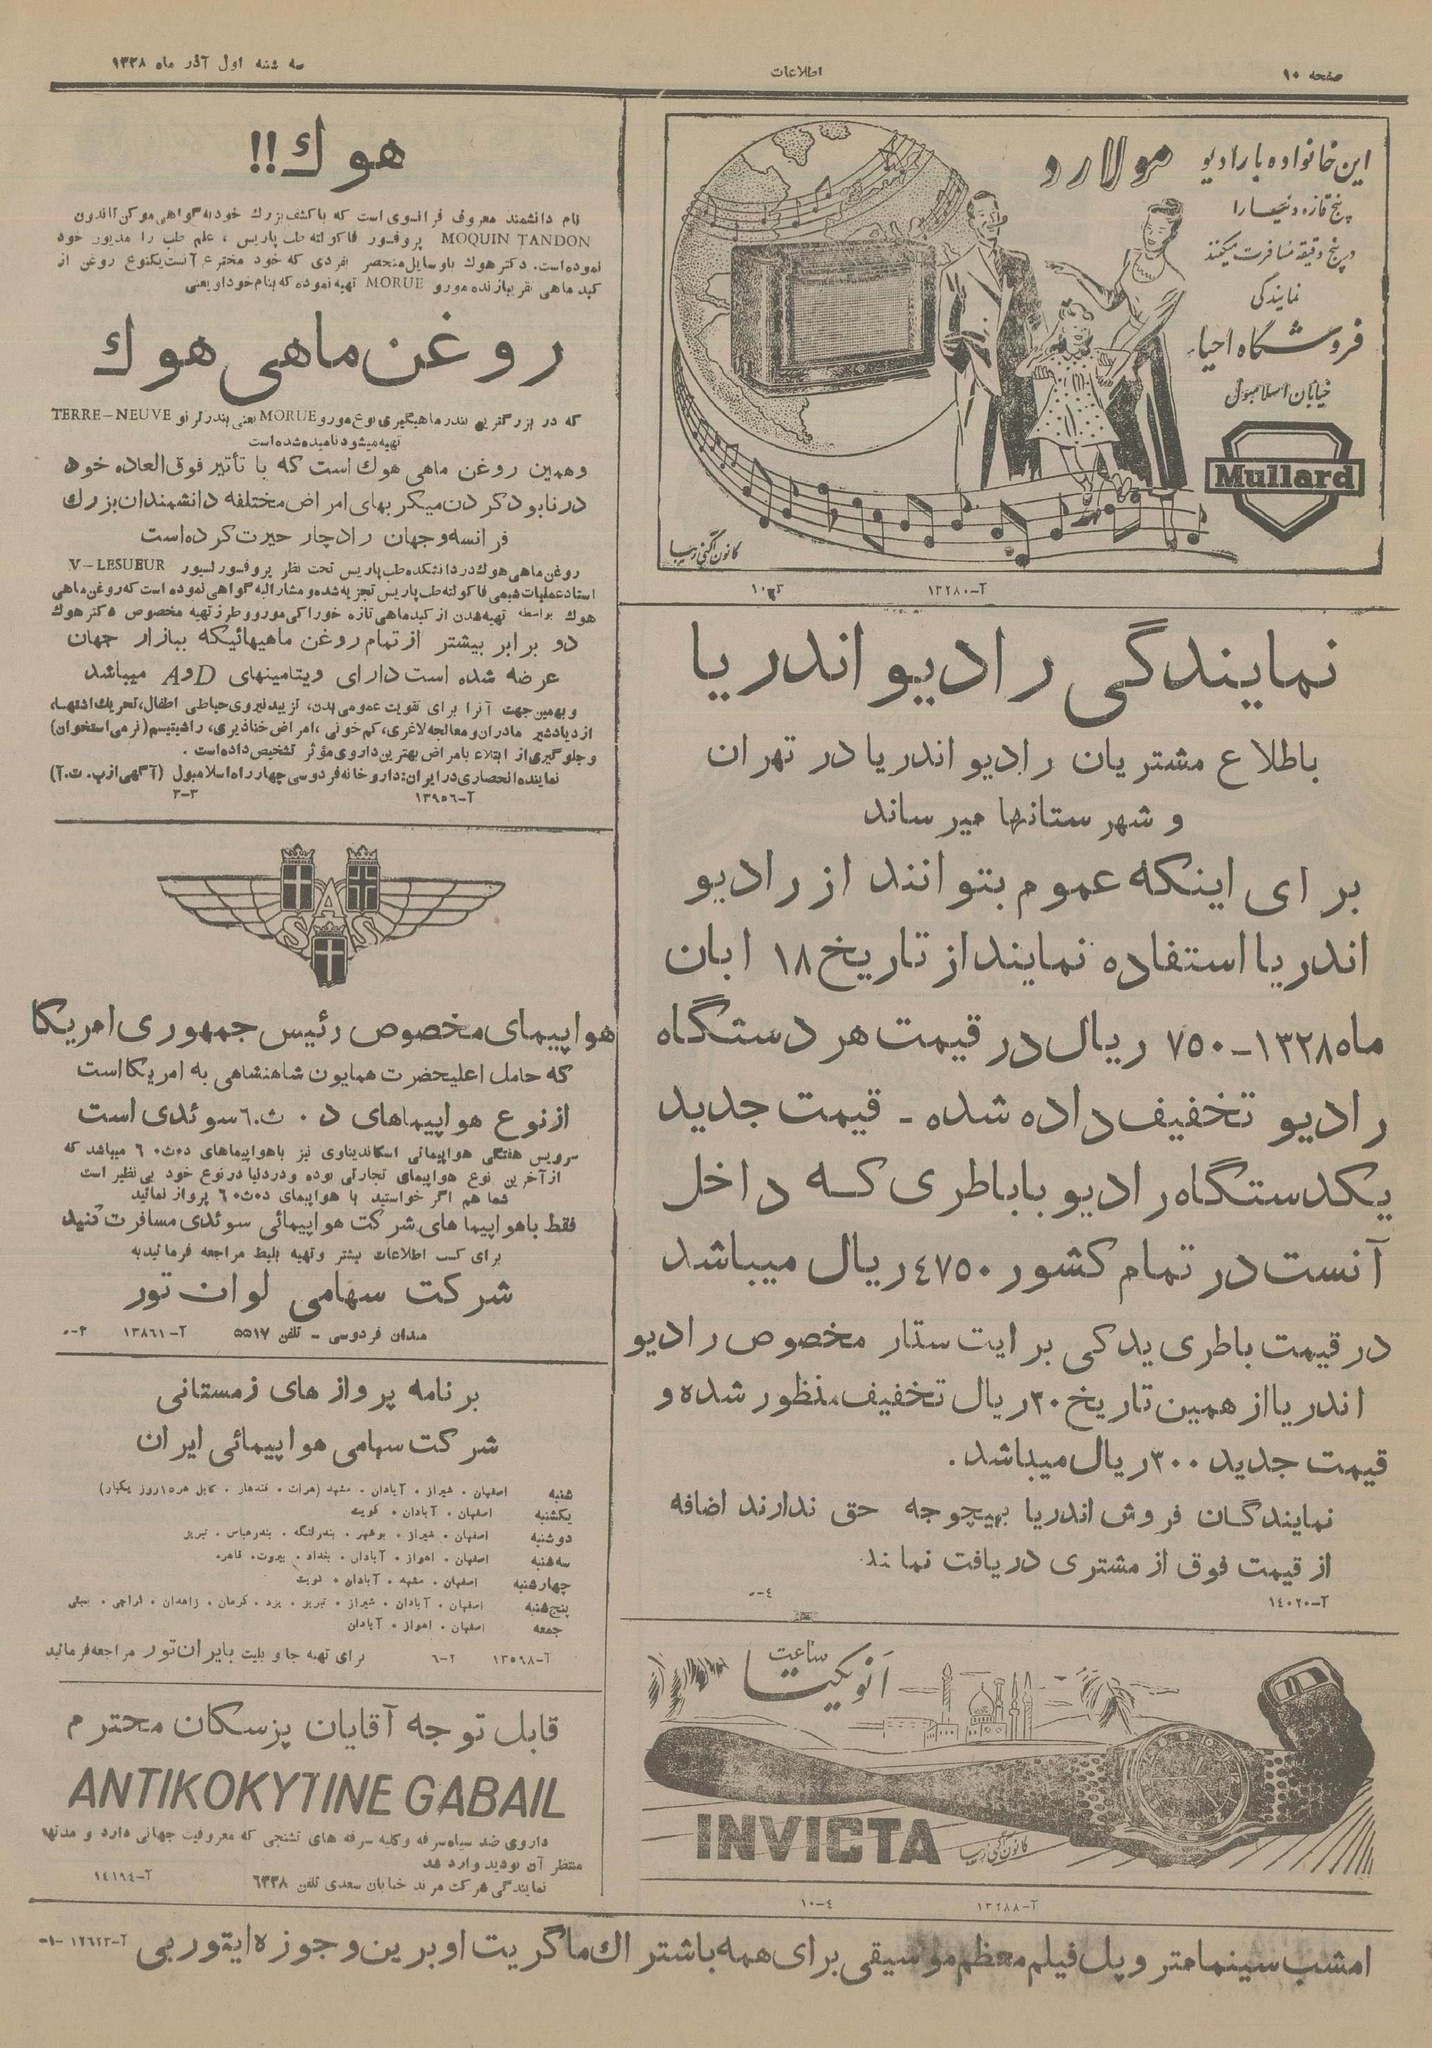 صفحه ۱۰
اطلاعات
سه شنبه اول آذر ماه ۱۳۲۸
این خانواده با رادیو مولارد
پنج قاره دنیا را
در پنج دقیقه مسافرت میکنند
نمایندگی
فروشگاه احیاء
خیابان اسلامبول
Mullard
کانون آگهی زیبا
آ-۱۳۲۸۰
نمایندگی رادیو اندریا
باطلاع مشتریان رادیو اندریا در تهران
و شهرستانها میرساند
برای اینکه عموم بتوانند از رادیو
اندریا استفاده نمایند از تاریخ ۱۸ ابان
ماه ۱۳۲۸-۷۵۰ ریال در قیمت هر دستگاه
رادیو تخفیف داده شده - قیمت جدید
یکدستگاه رادیو با باطری که داخل
آنست در تمام کشور ۴۷۵۰ ریال میباشد
در قیمت باطری یدکی برایت ستار مخصوص رادیو
اندریا از همین تاریخ ۳۰ ریال تخفیف منظور شده و
قیمت جدید ۳۰۰ ریال میباشد.
نمایندگان فروش اندریا بهیچوجه حق ندارند اضافه
از قیمت فوق از مشتری دریافت نمایند
آ-۱۴۰۲۰ ۴-۰
ساعت
انویکتا
INVICTA
کانون آگهی زیبا
آ-۱۳۲۸۸ ۴-۱۰
هوك!!
نام دانشمند معروف فرانسوی است که با کشف بزرك خود به گواهی موکن تاندون
MOQUIN TANDON پروفسور فاکولته طب پاریس، علم طب را مدیون خود
نموده است. دکتر هوك با وسایل منحصر بفردی که خود مخترع آنست یکنوع روغن از
کبد ماهی تقریبا زنده مورو MORUE تهیه نموده که بنام خود او یعنی
روغن ماهی هوك
که در بزرگترین بندر ماهیگیری نوع مورو MORUE یعنی بندر تر نو TERRE-NEUVE
تهیه میشود نامیده شده است
و همین روغن ماهی هوك است که با تأثیر فوق العاده خود
در نابود کردن میکربهای امراض مختلفه دانشمندان بزرك
فرانسه و جهان را دچار حیرت کرده است
روغن ماهی هوك در دانشکده طب پاریس تحت نظر پروفسور لسیور V-LESUEUR
استاد عملیات شیمی فاکولته طب پاریس تجزیه شده و مشار الیه گواهی نموده است که روغن ماهی
هوك بواسطه تهیه شدن از کبد ماهی تازه خوراکی مورو و طرز تهیه مخصوص دکتر هوك
دو برابر بیشتر از تمام روغن ماهیهائیکه ببازار جهان
عرضه شده است دارای ویتامینهای A و D میباشد
و بهمین جهت آنرا برای تقویت عمومی بدن، تزیید نیروی حیاطی اطفال، تحریك اشتها،
ازدیاد شیر مادران و معالجه لاغری، کم خونی، امراض خنازیری، راشیتیسم (نرمی استخوان)
و جلوگیری از ابتلاء بامراض بهترین داروی مؤثر تشخیص داده است.
نماینده انحصاری در ایران: داروخانه فردوسی چهارراه اسلامبول (آگهی از پ. ت. آ)
آ-۱۳۹۵۶ ۳-۳
SAS
هواپیمای مخصوص رئیس جمهوری امریکا
که حامل اعلیحضرت همایون شاهنشاهی به امریکا است
از نوع هواپیماهای د. ث. ۶ سوئدی است
سرویس هفتگی هواپیمائی اسکاندیناوی نیز با هواپیماهای د.ث.۶ میباشد که
از آخرین نوع هواپیمای تجارتی بوده و در دنیا در نوع خود بی نظیر است
شما هم اگر خواستید با هواپیمای د.ث.۶ پرواز نمائید
فقط با هواپیماهای شرکت هواپیمائی سوئدی مسافرت کنید
برای کسب اطلاعات بیشتر و تهیه بلیط مراجعه فرمائید به
شرکت سهامی لوان تور
میدان فردوسی - تلفن ۵۵۱۷ آ-۱۳۸۶۱
برنامه پروازهای زمستانی
شرکت سهامی هواپیمائی ایران
شنبه اصفهان. شیراز. آبادان. مشهد (هرات. قندهار. کابل هر ۱۵ روز یکبار)
یکشنبه اصفهان. آبادان. کویت
دوشنبه اصفهان. شیراز. بوشهر. بندرلنگه. بندرعباس. تبریز
سه شنبه اصفهان. اهواز. آبادان. بغداد. بیروت. قاهره
چهارشنبه اصفهان. مشهد. آبادان. کویت
پنج شنبه اصفهان. آبادان. شیراز. تبریز. یزد. کرمان. زاهدان. کراچی. بمبئی
جمعه اصفهان. اهواز. آبادان
برای تهیه جا و بلیت بایران تور مراجعه فرمائید
آ-۱۳۵۹۸ ۲-۶
قابل توجه آقایان پزشکان محترم
ANTIKOKYTINE GABAIL
داروی ضد سیاه سرفه و کلیه سرفه های تشنجی که معروفیت جهانی دارد و مدتها
منتظر آن بودید وارد شد
نمایندگی شرکت مرند خیابان سعدی تلفن ۶۳۳۸ آ-۱۴۱۹۴
امشب سینما متروپل فیلم معظم موسیقی برای همه باشتراك ماگریت اوبرین و جوزه ایتوربی آ-۱۲۶۲۳